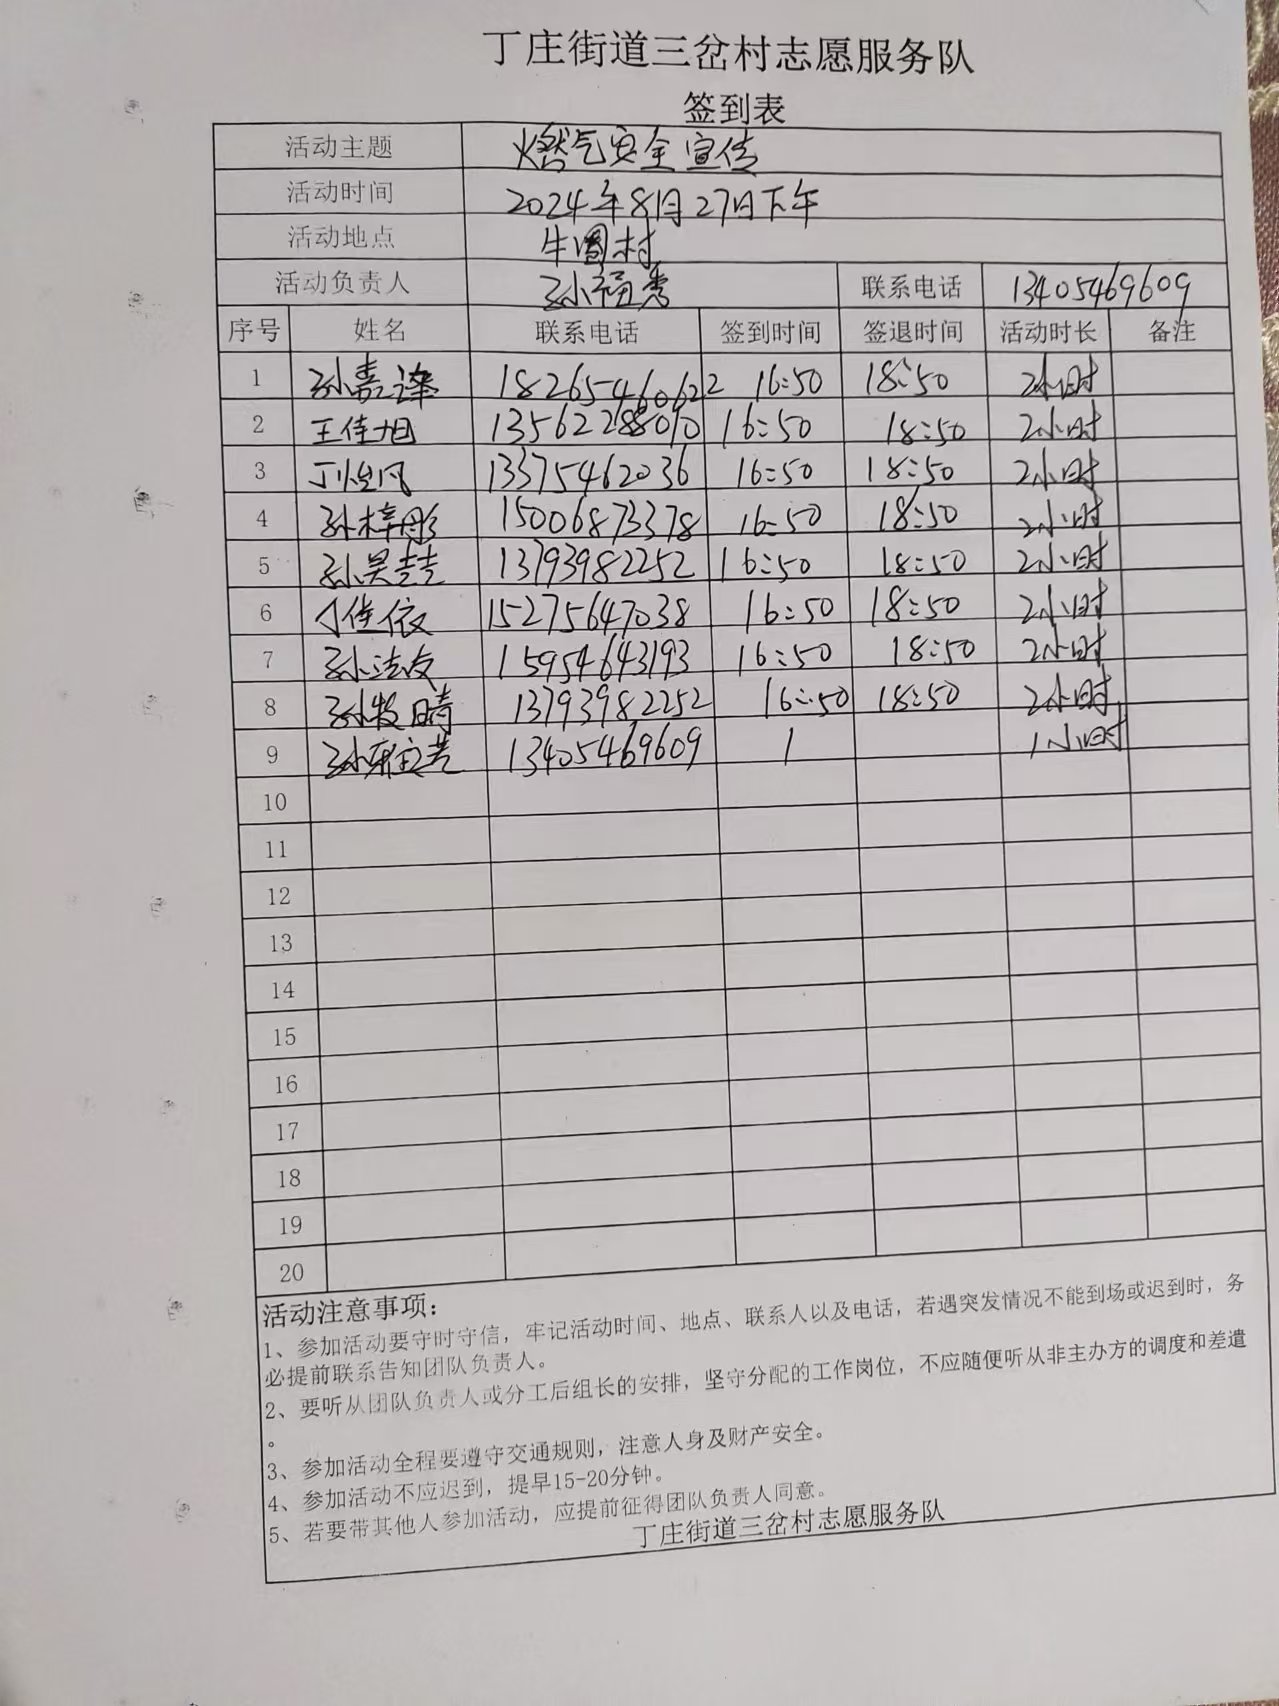 丁庄街道三岔村志愿服务队
签到表
活动主题 燃气安全宣传
活动时间 2024年8月27日下午
活动地点 牛圈村
活动负责人 孙福秀 联系电话 13405469609
序号 姓名 联系电话 签到时间 签退时间 活动时长 备注
1 孙嘉泽 18265460622 16:50 18:50 2小时
2 王佳旭 13562288010 16:50 18:50 2小时
3 丁 凤 13375462036 16:50 18:50 2小时
4 孙梓彤 15006873378 16:50 18:50 2小时
5 孙昊喆 13793982252 16:50 18:50 2小时
6 丁佳依 15275647038 16:50 18:50 2小时
7 孙法友 15954643193 16:50 18:50 2小时
8 孙牧晴 13793982252 16:50 18:50 2小时
9 孙 13405469609 1 1小时
10
11
12
13
14
15
16
17
18
19
20
活动注意事项：
1、参加活动要守时守信，牢记活动时间、地点、联系人以及电话，若遇突发情况不能到场或迟到时，务
必提前联系告知团队负责人。
2、要听从团队负责人或分工后组长的安排，坚守分配的工作岗位，不应随便听从非主办方的调度和差遣
。
3、参加活动全程要遵守交通规则，注意人身及财产安全。
4、参加活动不应迟到，提早15-20分钟。
5、若要带其他人参加活动，应提前征得团队负责人同意。
丁庄街道三岔村志愿服务队